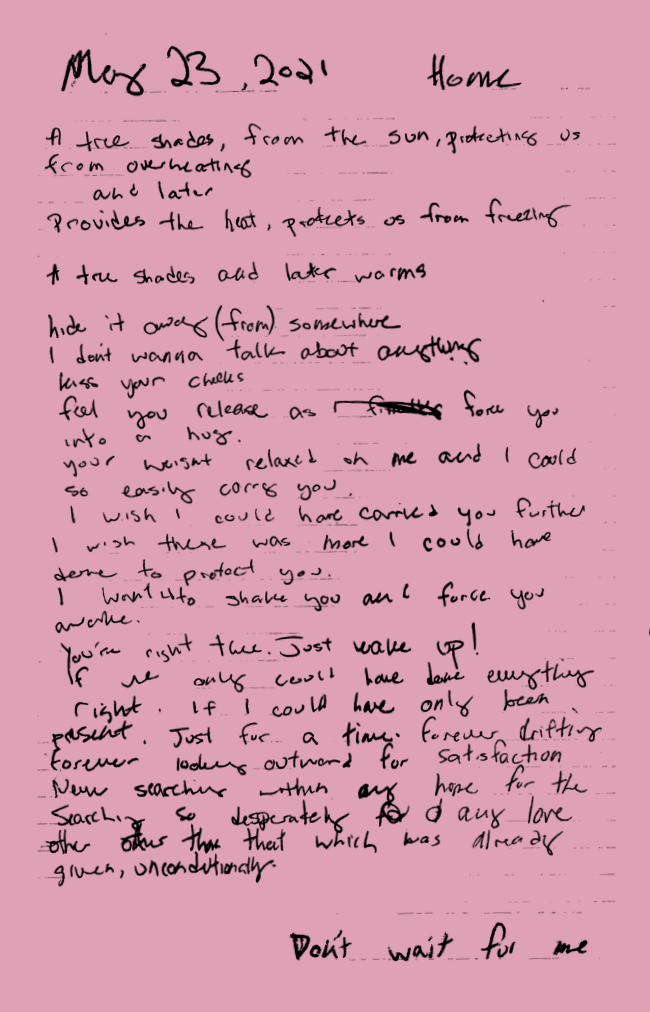 May 23, 2021 Home
A tree shades, from the sun, protecting us
from overheating
and later
Provides the heat, protects us from freezing
A tree shades and later warms
hide it away (from) somewhere
I don't wanna talk about anything
kiss your cheeks
feel you release as I force you
into a hug.
your weight relaxed on me and I could
so easily carry you.
I wish I could have carried you further
I wish there was more I could have
done to protect you.
I want to shake you and force you
awake.
You're right there. Just wake up!
If we only could have done everything
right. If I could have only been
present. Just for a time. Forever drifting
forever looking outward for satisfaction
Never searching within any hope for the
Searching so desperately any love
other other than that which was already
given, unconditionally.
Don't wait for me